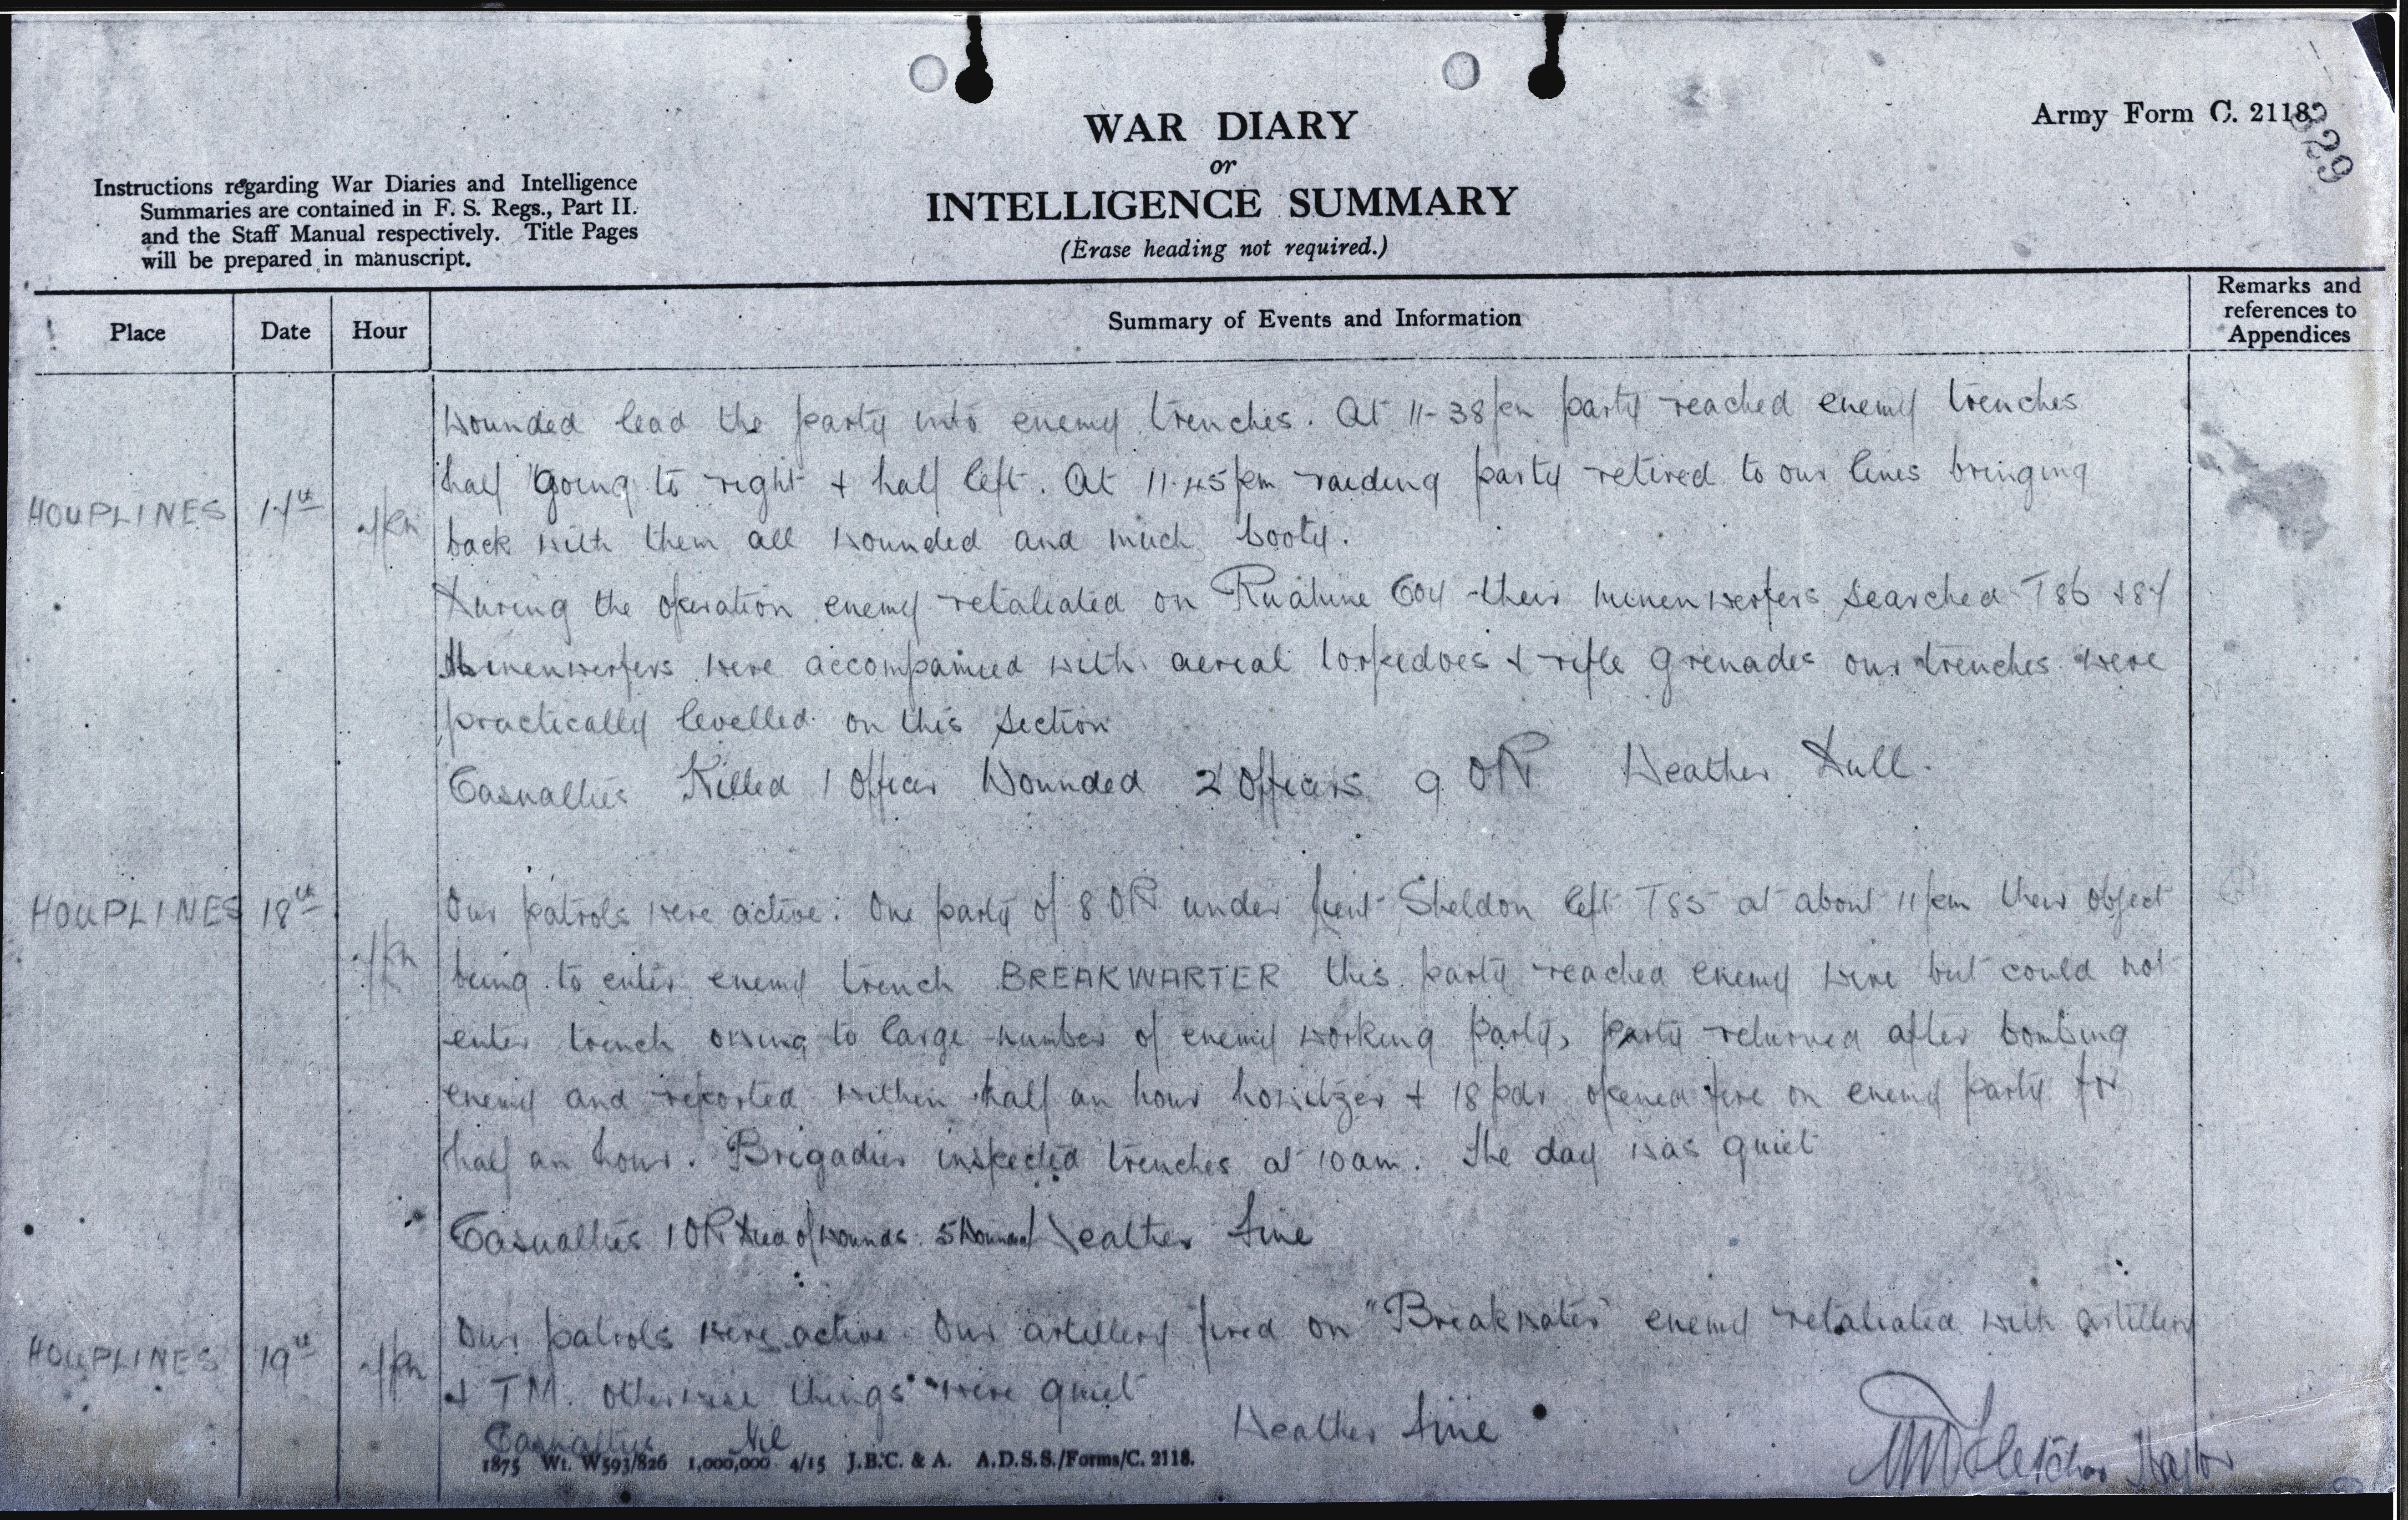 WAR DIARY
or
INTELLIGENCE SUMMARY
(Erase heading not required.)
Army Form C. 2118
329
Instructions regarding War Diaries and Intelligence
Summaries are contained in F. S. Regs., Part II.
and the Staff Manual respectively. Title Pages
will be prepared in manuscript.
Place Date Hour Summary of Events and Information Remarks and references to Appendices
wounded lead the party into enemy trenches. At 11-38 pm party reached enemy trenches
half going to right + half left. At 11.45 pm raiding party retired to our lines bringing
HOUPLINES 17th
back with them all wounded and much booty.
During the operation enemy retaliated on Ruahine Coy their minenwerfers searched T86 + 87
Minenwerfers were accompanied with aerial torpedoes + rifle grenades our trenches were
practically levelled on this section
Casualties Killed 1 Officer Wounded 2 Officers 9 OR Weather Dull.
HOUPLINES 18th Our patrols were active. One party of 8 OR under Lieut Sheldon left T85 at about 11 pm their object
being to enter enemy trench BREAKWARTER this party reached enemy wire but could not
enter trench owing to large number of enemy working party, party returned after bombing
enemy and reported within half an hour howitzer + 18 pdr opened fire on enemy party for
half an hour. Brigadier inspected trenches at 10 am. The day was quiet
Casualties 1 OR Died of wounds. 5 Wounded Weather Fine
Our patrols were active. Our artillery fired on "Breakwater" enemy retaliated with artillery
HOUPLINES 19th
+ TM. otherwise things were quiet
Casualties Nil Weather Fine
1875 Wt. W593/826 1,000,000 4/15 J.B.C. & A. A.D.S.S./Forms/C. 2118.
Fletcher Major